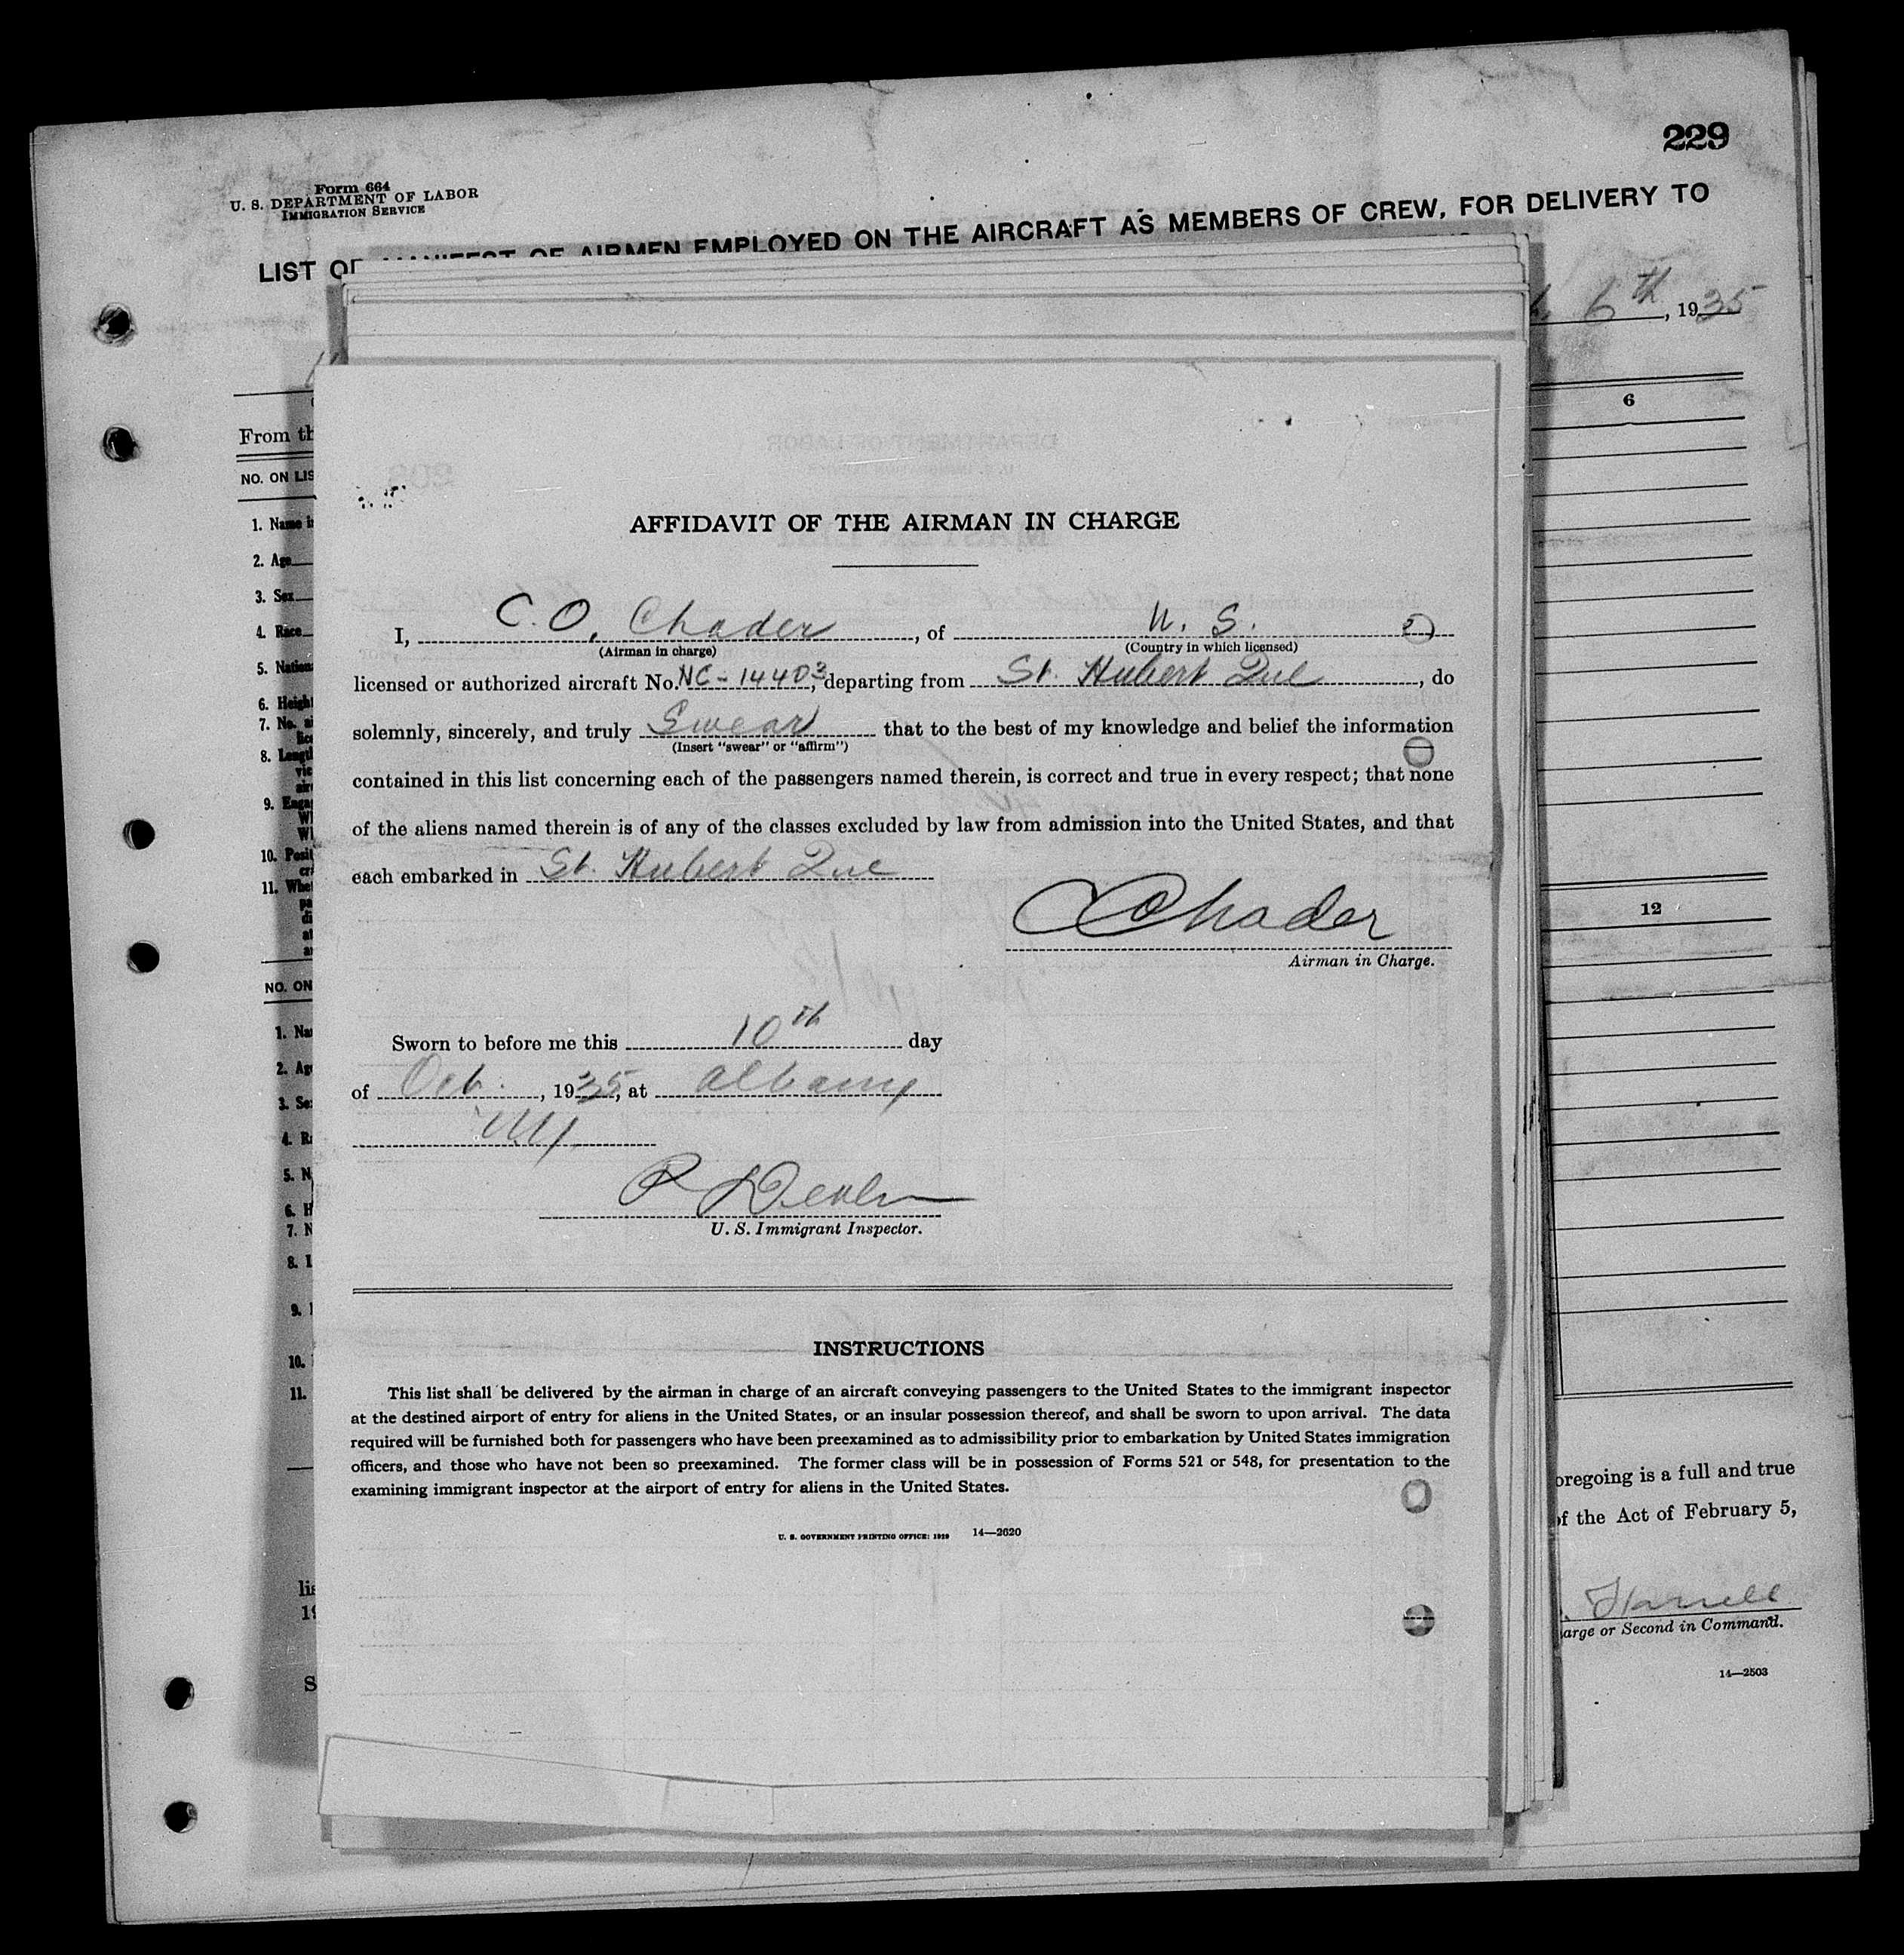 229
Form 664
U. S. DEPARTMENT OF LABOR
IMMIGRATION SERVICE
LIST OR MANIFEST OF AIRMEN EMPLOYED ON THE AIRCRAFT AS MEMBERS OF CREW, FOR DELIVERY TO
6th, 1935
6
From th
NO. ON LIS
1. Name i
2. Age
3. Sex
4. Race
5. Nationa
6. Height
7. No. a
8. Length
9. Enga
10. Posit
11. Whet
12
NO. ON
1. Na
2. Ag
3. Se
4. Ra
5. N
6. H
7. N
8. I
9.
10.
11.
AFFIDAVIT OF THE AIRMAN IN CHARGE
I, C. O. Chader, of U. S.
(Airman in charge) (Country in which licensed)
licensed or authorized aircraft No. NC-14403, departing from St. Hubert Que, do
solemnly, sincerely, and truly Swear that to the best of my knowledge and belief the information
(Insert "swear" or "affirm")
contained in this list concerning each of the passengers named therein, is correct and true in every respect; that none
of the aliens named therein is of any of the classes excluded by law from admission into the United States, and that
each embarked in St. Hubert Que
CO Chader
Airman in Charge.
Sworn to before me this 10th day
of Oct., 1935, at Albany
NY
U. S. Immigrant Inspector.
INSTRUCTIONS
This list shall be delivered by the airman in charge of an aircraft conveying passengers to the United States to the immigrant inspector
at the destined airport of entry for aliens in the United States, or an insular possession thereof, and shall be sworn to upon arrival. The data
required will be furnished both for passengers who have been preexamined as to admissibility prior to embarkation by United States immigration
officers, and those who have not been so preexamined. The former class will be in possession of Forms 521 or 548, for presentation to the
examining immigrant inspector at the airport of entry for aliens in the United States.
U. S. GOVERNMENT PRINTING OFFICE: 1929 14—2620
oregoing is a full and true
of the Act of February 5,
lis
19
arge or Second in Command.
S
14—2503